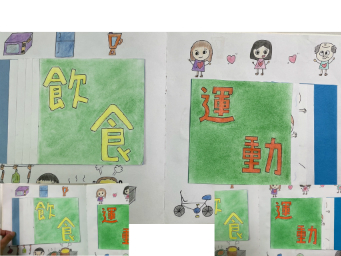 飲
食
運
動
飲
食
運
動
食
運
動